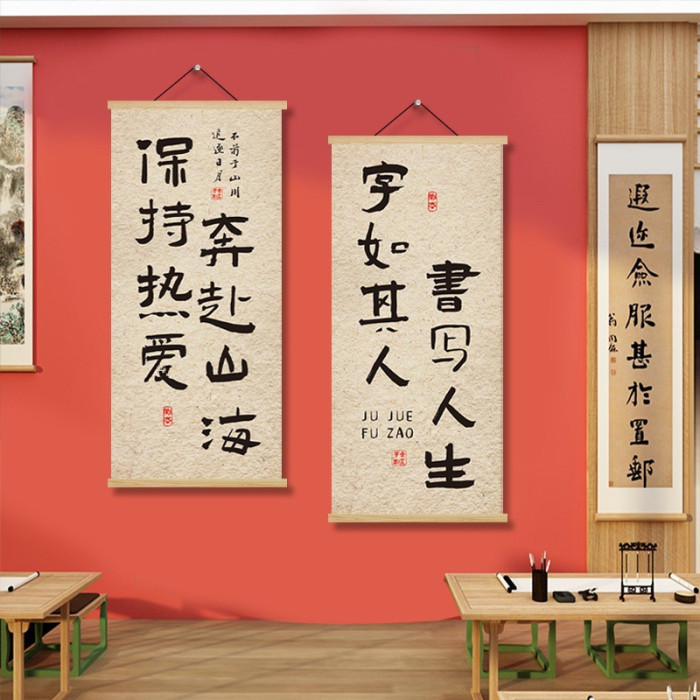 保持热爱
追逐日月
于山川
奔赴山海
字如其人
JU JUE
FU ZAO
書写人生
遐迩僉服甚於置郵